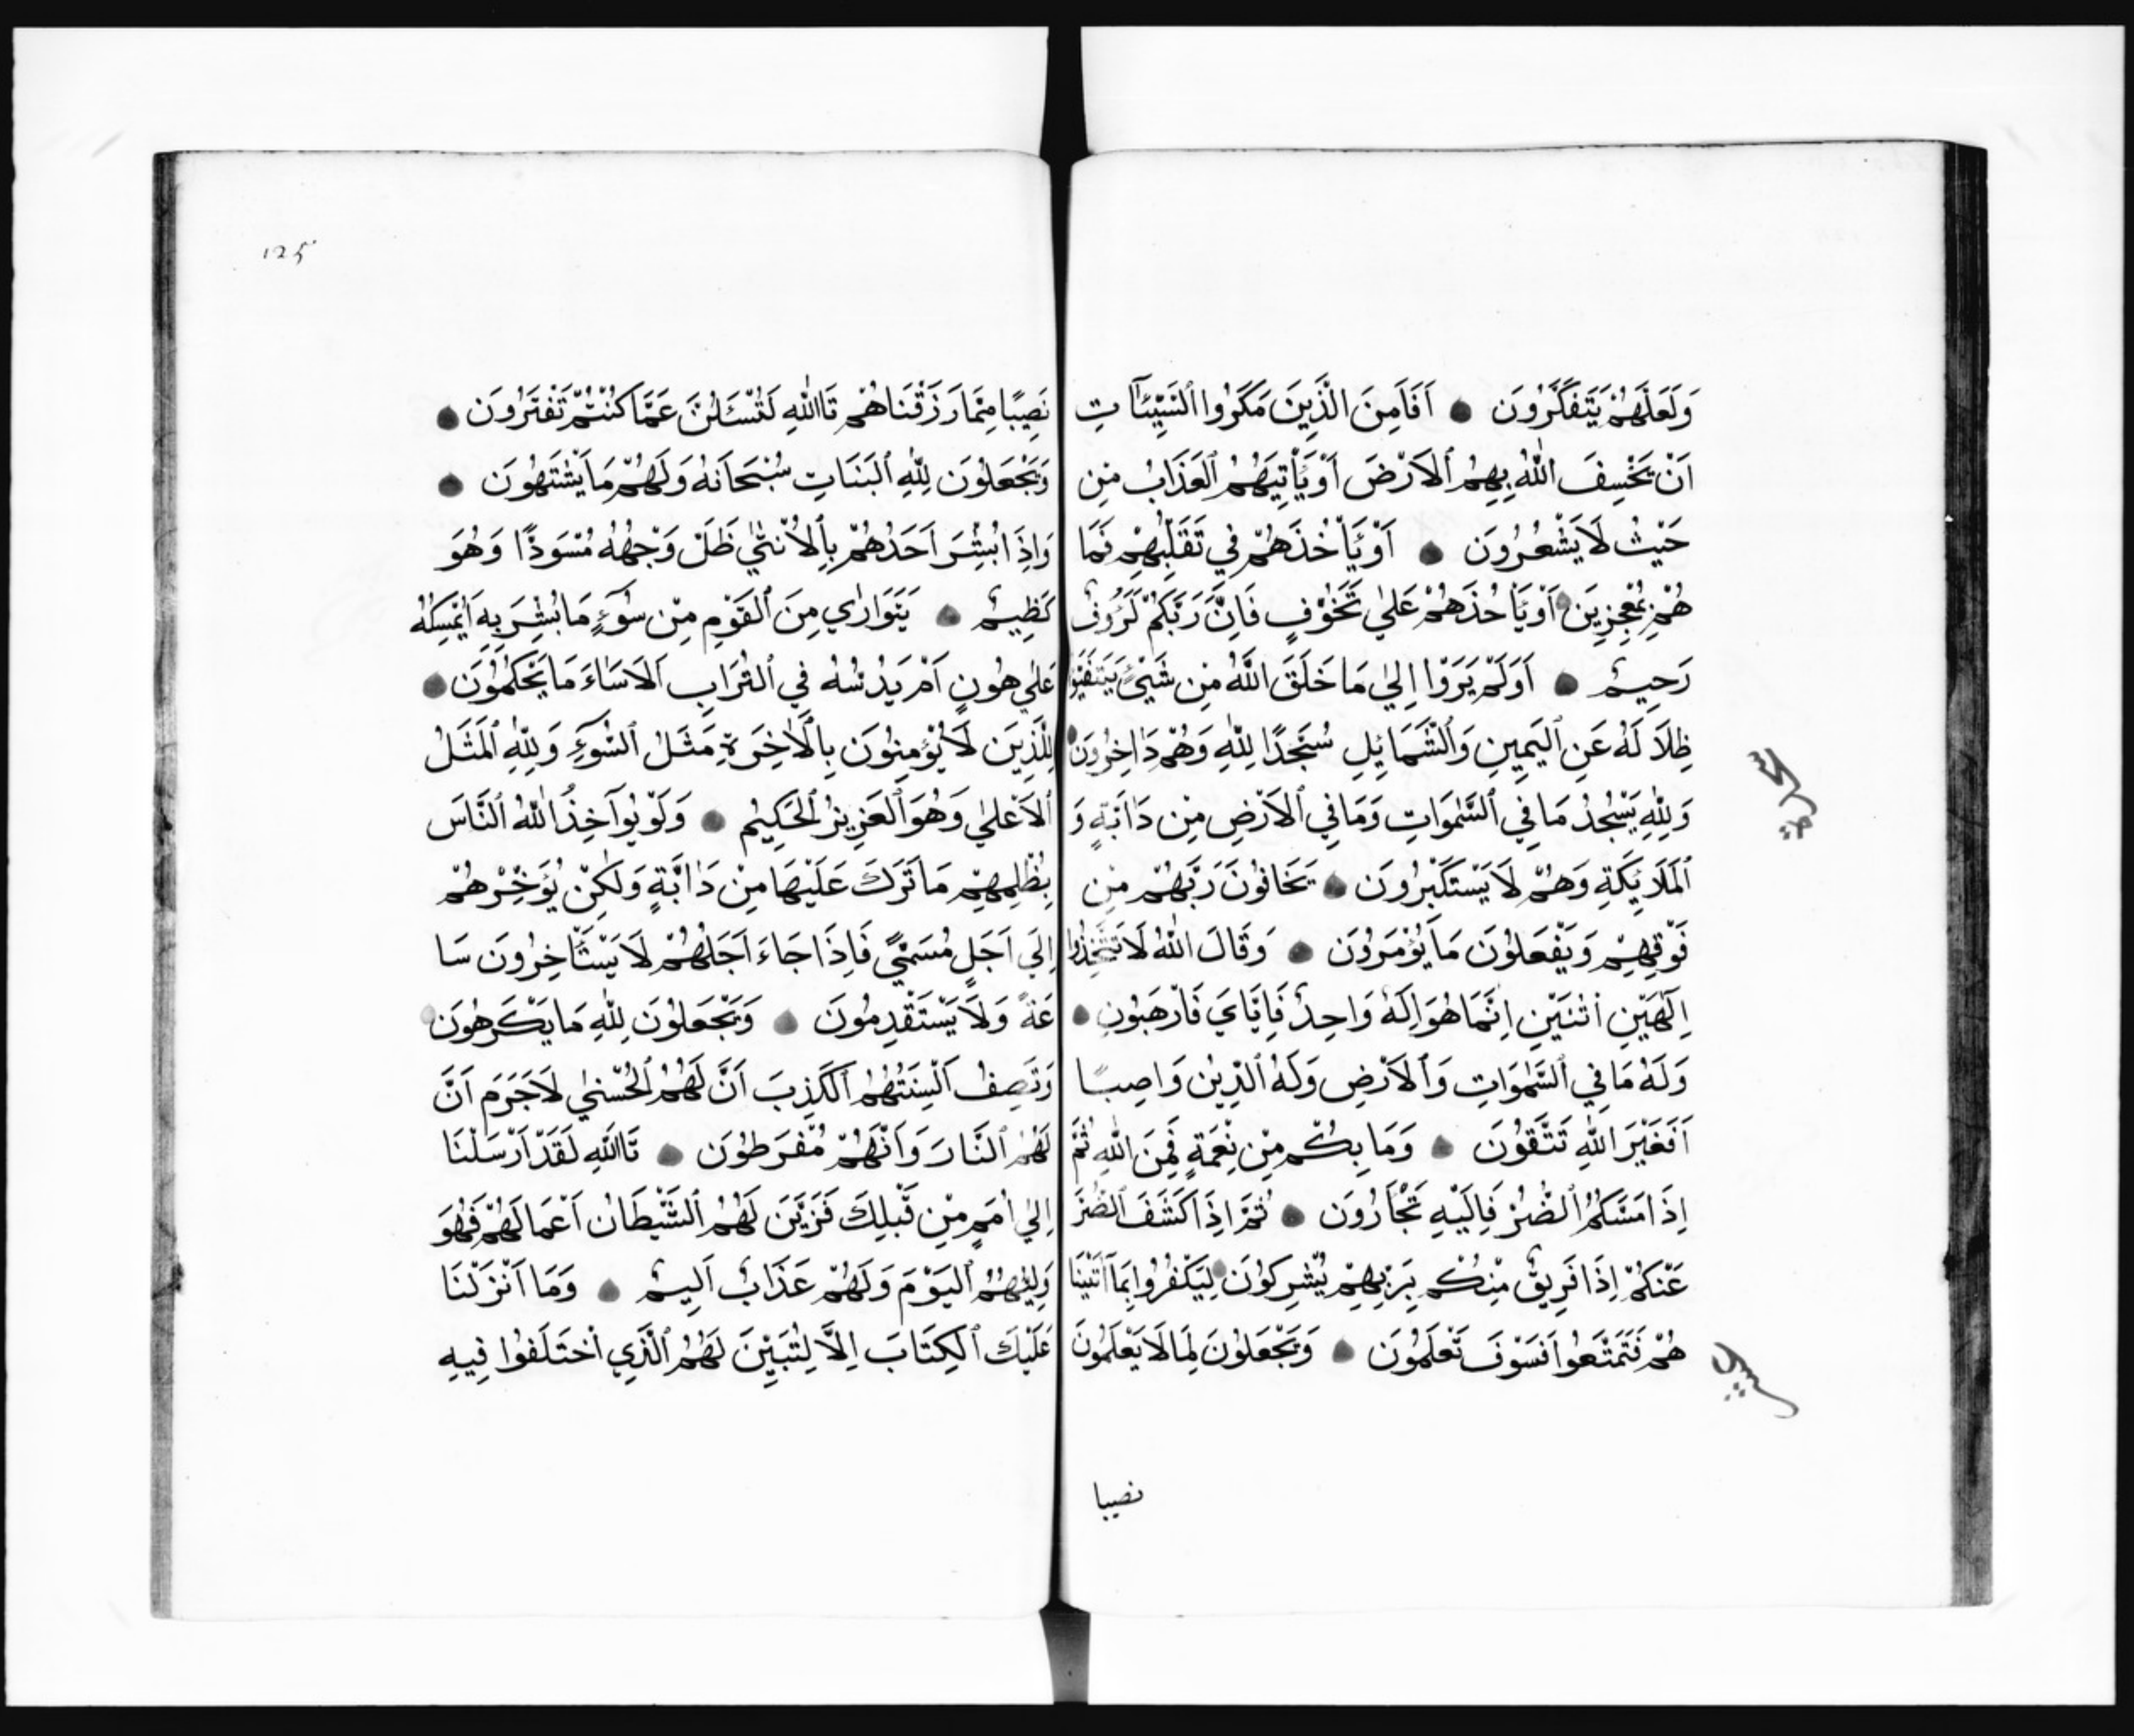 وَلَعَلَّهُمْ يَتَفَكَّرُونَ اَفَاَمِنَ الَّذِينَ مَكَرُوا ٱلسَّيِّئَآتِ
اَنْ يَخْسِفَ اللّٰهُ بِهِمُ ٱلاَرْضَ اَوْ يَأْتِيَهُمُ ٱلعَذَابُ مِن
حَيْثُ لَا يَشْعُرُونَ اَوْ يَأْخُذَهُمْ فِي تَقَلُّبِهِمْ فَمَا
هُمْ بِمُعْجِزِينَ اَوْ يَأْخُذَهُمْ عَلٰي تَخَوُّفٍ فَاِنَّ رَبَّكُمْ لَرَؤُفٌ
رَحِيمٌ اَوَلَمْ يَرَوْا اِلٰي مَا خَلَقَ اللّٰهُ مِن شَيْئٍ يَتَفَيَّؤُ
ظِلَالَهُ عَنِ ٱليَمِينِ وَٱلشَّمَائِلِ سُجَّدًا لِلّٰهِ وَهُمْ دَاخِرُونَ
وَلِلّٰهِ يَسْجُدُ مَا فِي ٱلسَّمٰوَاتِ وَمَا فِي ٱلاَرْضِ مِن دَآبَّةٍ وَ
ٱلمَلَائِكَةِ وَهُمْ لَا يَسْتَكْبِرُونَ يَخَافُونَ رَبَّهُمْ مِن
فَوْقِهِمْ وَيَفْعَلُونَ مَا يُؤْمَرُونَ وَقَالَ اللّٰهُ لَا تَتَّخِذُوا
اِلٰهَيْنِ اثْنَيْنِ اِنَّمَا هُوَ اِلَهٌ وَاحِدٌ فَاِيَّايَ فَارْهَبُونِ
وَلَهُ مَا فِي ٱلسَّمٰوَاتِ وَٱلاَرْضِ وَلَهُ ٱلدِّينُ وَاصِبًا
اَفَغَيْرَ اللّٰهِ تَتَّقُونَ وَمَا بِكُمْ مِن نِعْمَةٍ فَمِنَ اللّٰهِ ثُمَّ
اِذَا مَسَّكُمُ ٱلضُّرُّ فَاِلَيْهِ تَجْأَرُونَ ثُمَّ اِذَا كَشَفَ ٱلضُّرَّ
عَنْكُمْ اِذَا فَرِيقٌ مِنْكُم بِرَبِّهِمْ يُشْرِكُونَ لِيَكْفُرُوا بِمَا آتَيْنَا
هُمْ فَتَمَتَّعُوا فَسَوْفَ تَعْلَمُونَ وَيَجْعَلُونَ لِمَا لَا يَعْلَمُونَ
نصيبا
١٢٥
نَصِيبًا مِمَّا رَزَقْنَاهُمْ تَاللّٰهِ لَتُسْئَلُنَّ عَمَّا كُنْتُمْ تَفْتَرُونَ
وَيَجْعَلُونَ لِلّٰهِ ٱلبَنَاتِ سُبْحَانَهُ وَلَهُمْ مَا يَشْتَهُونَ
وَاِذَا بُشِّرَ اَحَدُهُمْ بِٱلاُنْثٰي ظَلَّ وَجْهُهُ مُسْوَدًّا وَهُوَ
كَظِيمٌ يَتَوَارٰي مِنَ ٱلقَوْمِ مِن سُوٓءِ مَا بُشِّرَ بِهِ اَيُمْسِكُهُ
عَلٰي هُونٍ اَمْ يَدُسُّهُ فِي ٱلتُّرَابِ اَلَا سَاءَ مَا يَحْكُمُونَ
لِلَّذِينَ لَا يُؤْمِنُونَ بِالْاٰخِرَةِ مَثَلُ ٱلسَّوْءِ وَلِلّٰهِ ٱلمَثَلُ
ٱلاَعْلٰي وَهُوَ ٱلعَزِيزُ ٱلحَكِيمُ وَلَوْ يُوآخِذُ اللّٰهُ ٱلنَّاسَ
بِظُلْمِهِمْ مَا تَرَكَ عَلَيْهَا مِنْ دَابَّةٍ وَلٰكِنْ يُؤَخِّرُهُمْ
اِلَي اَجَلٍ مُسَمًّي فَاِذَا جَاءَ اَجَلُهُمْ لَا يَسْتَأْخِرُونَ سَا
عَةً وَلَا يَسْتَقْدِمُونَ وَيَجْعَلُونَ لِلّٰهِ مَا يَكْرَهُونَ
وَتَصِفُ اَلْسِنَتُهُمُ ٱلكَذِبَ اَنَّ لَهُمُ ٱلحُسْنٰي لَا جَرَمَ اَنَّ
لَهُمُ ٱلنَّارَ وَاَنَّهُمْ مُفْرَطُونَ تَاللّٰهِ لَقَدْ اَرْسَلْنَا
اِلٰي اُمَمٍ مِن قَبْلِكَ فَزَيَّنَ لَهُمُ ٱلشَّيْطَانُ اَعْمَالَهُمْ فَهُوَ
وَلِيُّهُمُ ٱليَوْمَ وَلَهُمْ عَذَابٌ اَلِيمٌ وَمَا اَنْزَلْنَا
عَلَيْكَ ٱلكِتَابَ اِلَّا لِتُبَيِّنَ لَهُمُ ٱلَّذِي اخْتَلَفُوا فِيهِ